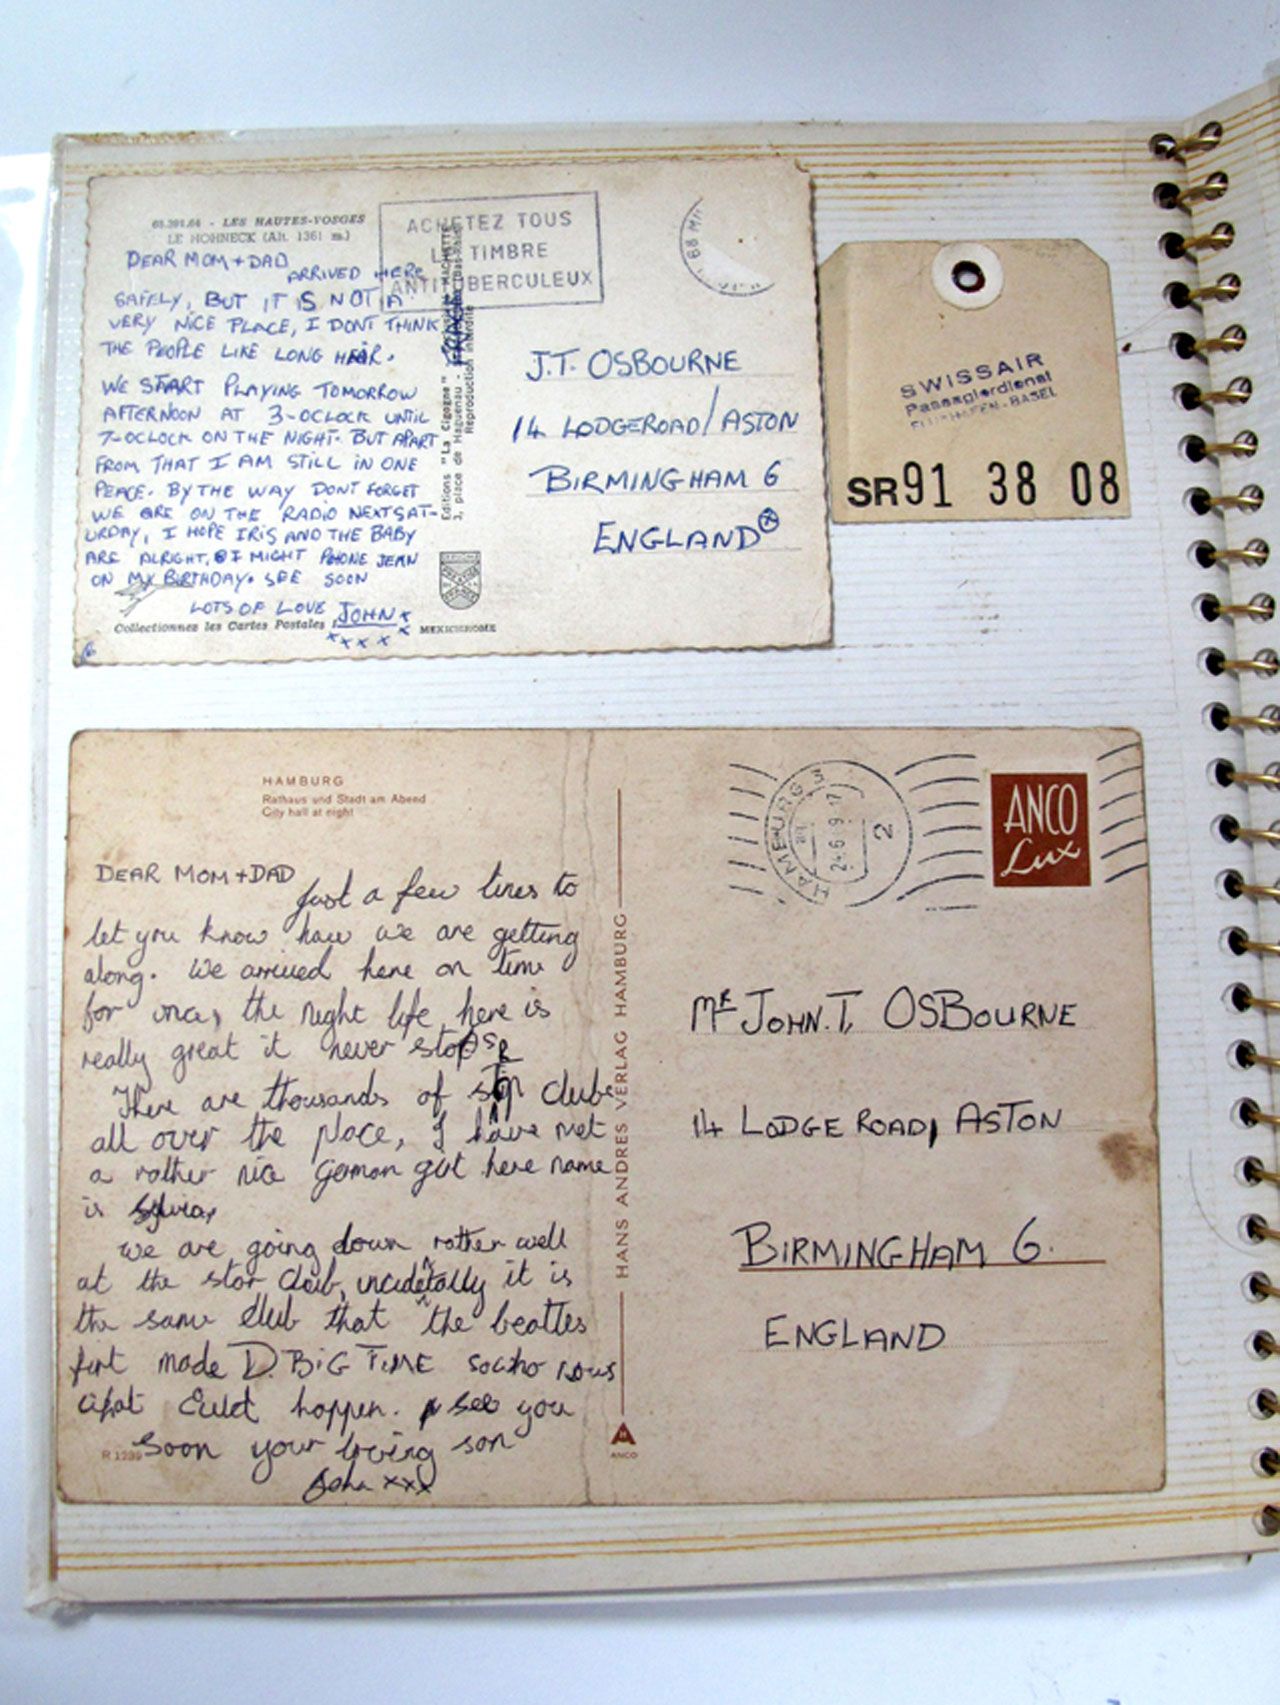 68.391.64 - LES HAUTES-VOSGES
LE HOHNECK (Alt. 1361 m.)
DEAR MOM + DAD
ARRIVED HERE
SAFELY, BUT IT IS NOT A
VERY NICE PLACE, I DONT THINK
THE PEOPLE LIKE LONG HAIR.
WE START PLAYING TOMORROW
AFTERNOON AT 3-OCLOCK UNTIL
7-OCLOCK ON THE NIGHT. BUT APART
FROM THAT I AM STILL IN ONE
PEACE. BY THE WAY DONT FORGET
WE ARE ON THE RADIO NEXT SAT-
URDAY, I HOPE IRIS AND THE BABY
ARE ALRIGHT, I MIGHT PHONE JEAN
ON MY BIRTHDAY. SEE SOON
LOTS OF LOVE JOHN x
x x x x x
Collectionnez les Cartes Postales
MEXICHROME
Editions "La Cigogne"
3, place de Haguenau -
Reproduction interdite
HACHETTE
ACHETEZ TOUS
LE TIMBRE
ANTITUBERCULEUX
J.T. OSBOURNE
14 LODGEROAD/ASTON
BIRMINGHAM 6
ENGLAND
SWISSAIR
Passagierdienst
-BASEL
SR 91 38 08
HAMBURG
Rathaus und Stadt am Abend
City hall at night
DEAR MOM + DAD
Just a few lines to
let you know how we are getting
along. We arrived here on time
for once, the night life here is
really great it never stops
There are thousands of clubs
all over the place, I have met
a rather nice german girl here name
is Sylvia,
we are going down rather well
at the star club, incidetally it is
the same club that the beatles
first made D. BIG TIME so who nows
what could happen. see you
soon your loving son
John xxx
R 1239
HANS ANDRES VERLAG HAMBURG
ANCO
HAMBURG
2
ANCO
Lux
Mr JOHN. T. OSBOURNE
14 LODGE ROAD, ASTON
BIRMINGHAM 6.
ENGLAND